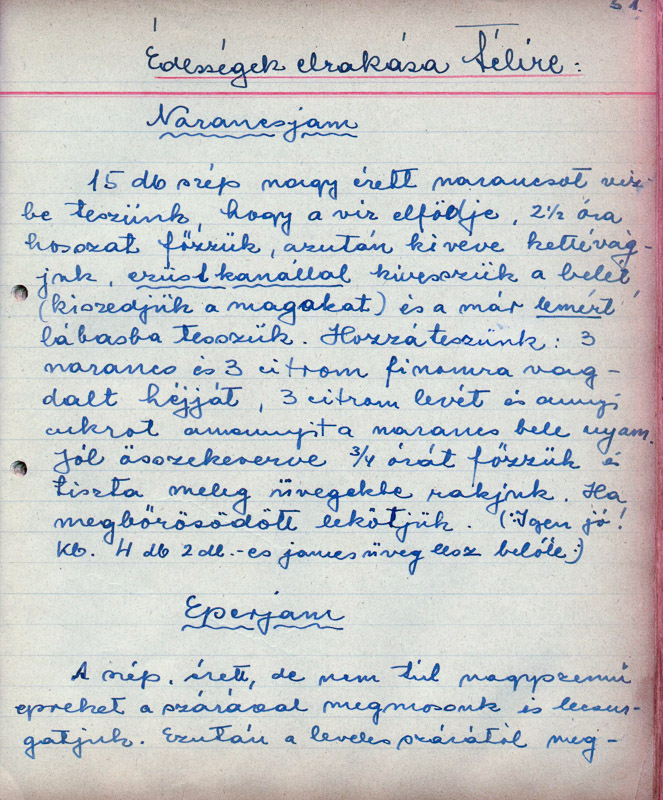 51.
Édességek elrakása Télire:
Narancsjam
15 db szép nagy érett narancsot viz-
be teszünk, hogy a viz elfödje, 2½ óra
hosszat főzzük, azután kivéve kettévág-
juk, ezüst kanállal kivesszük a belét
(kiszedjük a magakat) és a már lemért
lábasba tesszük. Hozzáteszünk: 3
narancs és 3 citrom finomra vag-
dalt héjját, 3 citrom levét és annyi
cukrot amannyit a narancs bele nyom.
Jól összekeverve ¾ órát főzzük és
tiszta meleg üvegekbe rakjuk. Ha
megbőrösödött lekötjük. (:Igen jó!
Kb. 4 db 2 dl.-es jamesüveg lesz belőle:)
Eperjam
A szép, érett, de nem túl nagyszemű
epreket a szárával megmosunk és lecsur-
gatjuk. Ezután a leveles szárától meg-